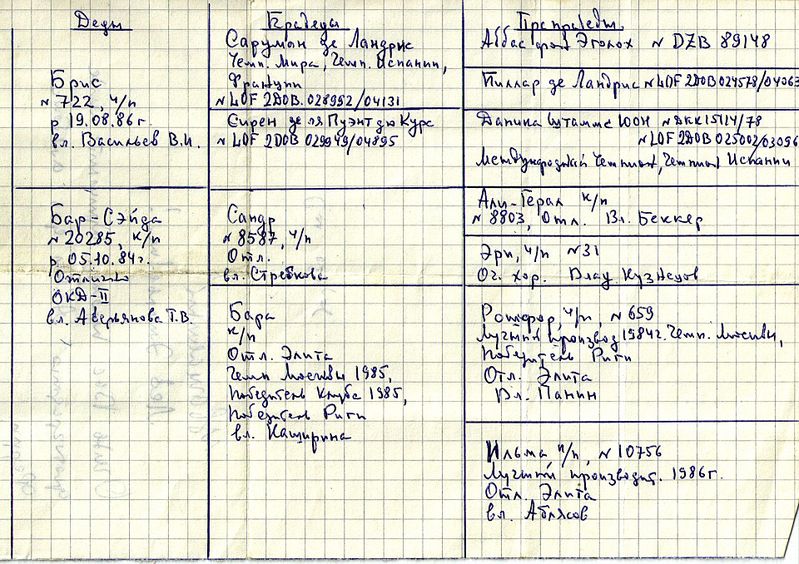 Деды
Брис
№ 722, ч/п
р 19.08.86г.
вл. Васильев В.И.
Бар-Сэйда
№ 20285, к/п
р. 05.10.84г.
Отлично
ОКД-II
вл. Аверьянова Т.В.
Прадеды
Саруман де Ландрис
Чемп. Мира, Чемп. Испании,
Франции
№ LOF 2DOB.028952/04131
Сирен де ля Пуэнт дю Курс
№ LOF 2DOB 029949/04895
Сандр
№ 8587, ч/п
Отл.
вл. Стребкова
Бара
к/п
Отл. Элита
Чемп Москвы 1985,
Победитель Клуба 1985,
Победитель Риги
вл. Каширина
Прапрадеды
Аббас фон Эголох № DZB 89148
Пиллар де Ландрис № LOF 2DOB 024578/04063
Даника Штаммс ЮОН № DKK15114/78
№ LOF 2DOB 025002/03096
Международный Чемпион, Чемпион Испании
Али-Герал к/п
№ 8803, Отл. Вл. Беккер
Эри, ч/п № 31
Оч. хор. Влад Кузнецов
Рошфор, ч/п, № 659
Лучший производ 1984г. Чемп. Москвы,
Победитель Риги
Отл. Элита
Вл. Панин
Ильма, п/п, № 10756
Лучший производит. 1986г.
Отл. Элита
вл. Аблясов